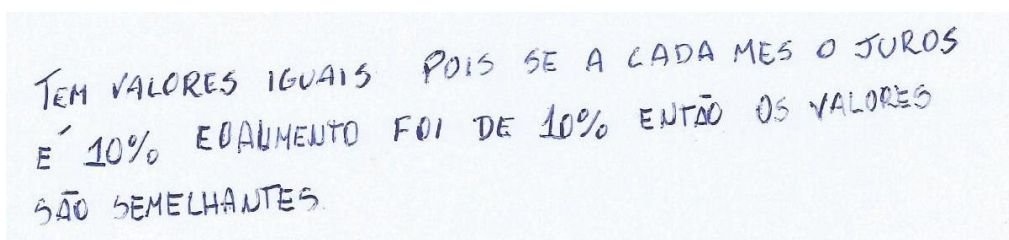 TEM VALORES IGUAIS POIS SE A CADA MES O JUROS
É 10% E O AUMENTO FOI DE 10% ENTÃO OS VALORES
SÃO SEMELHANTES.